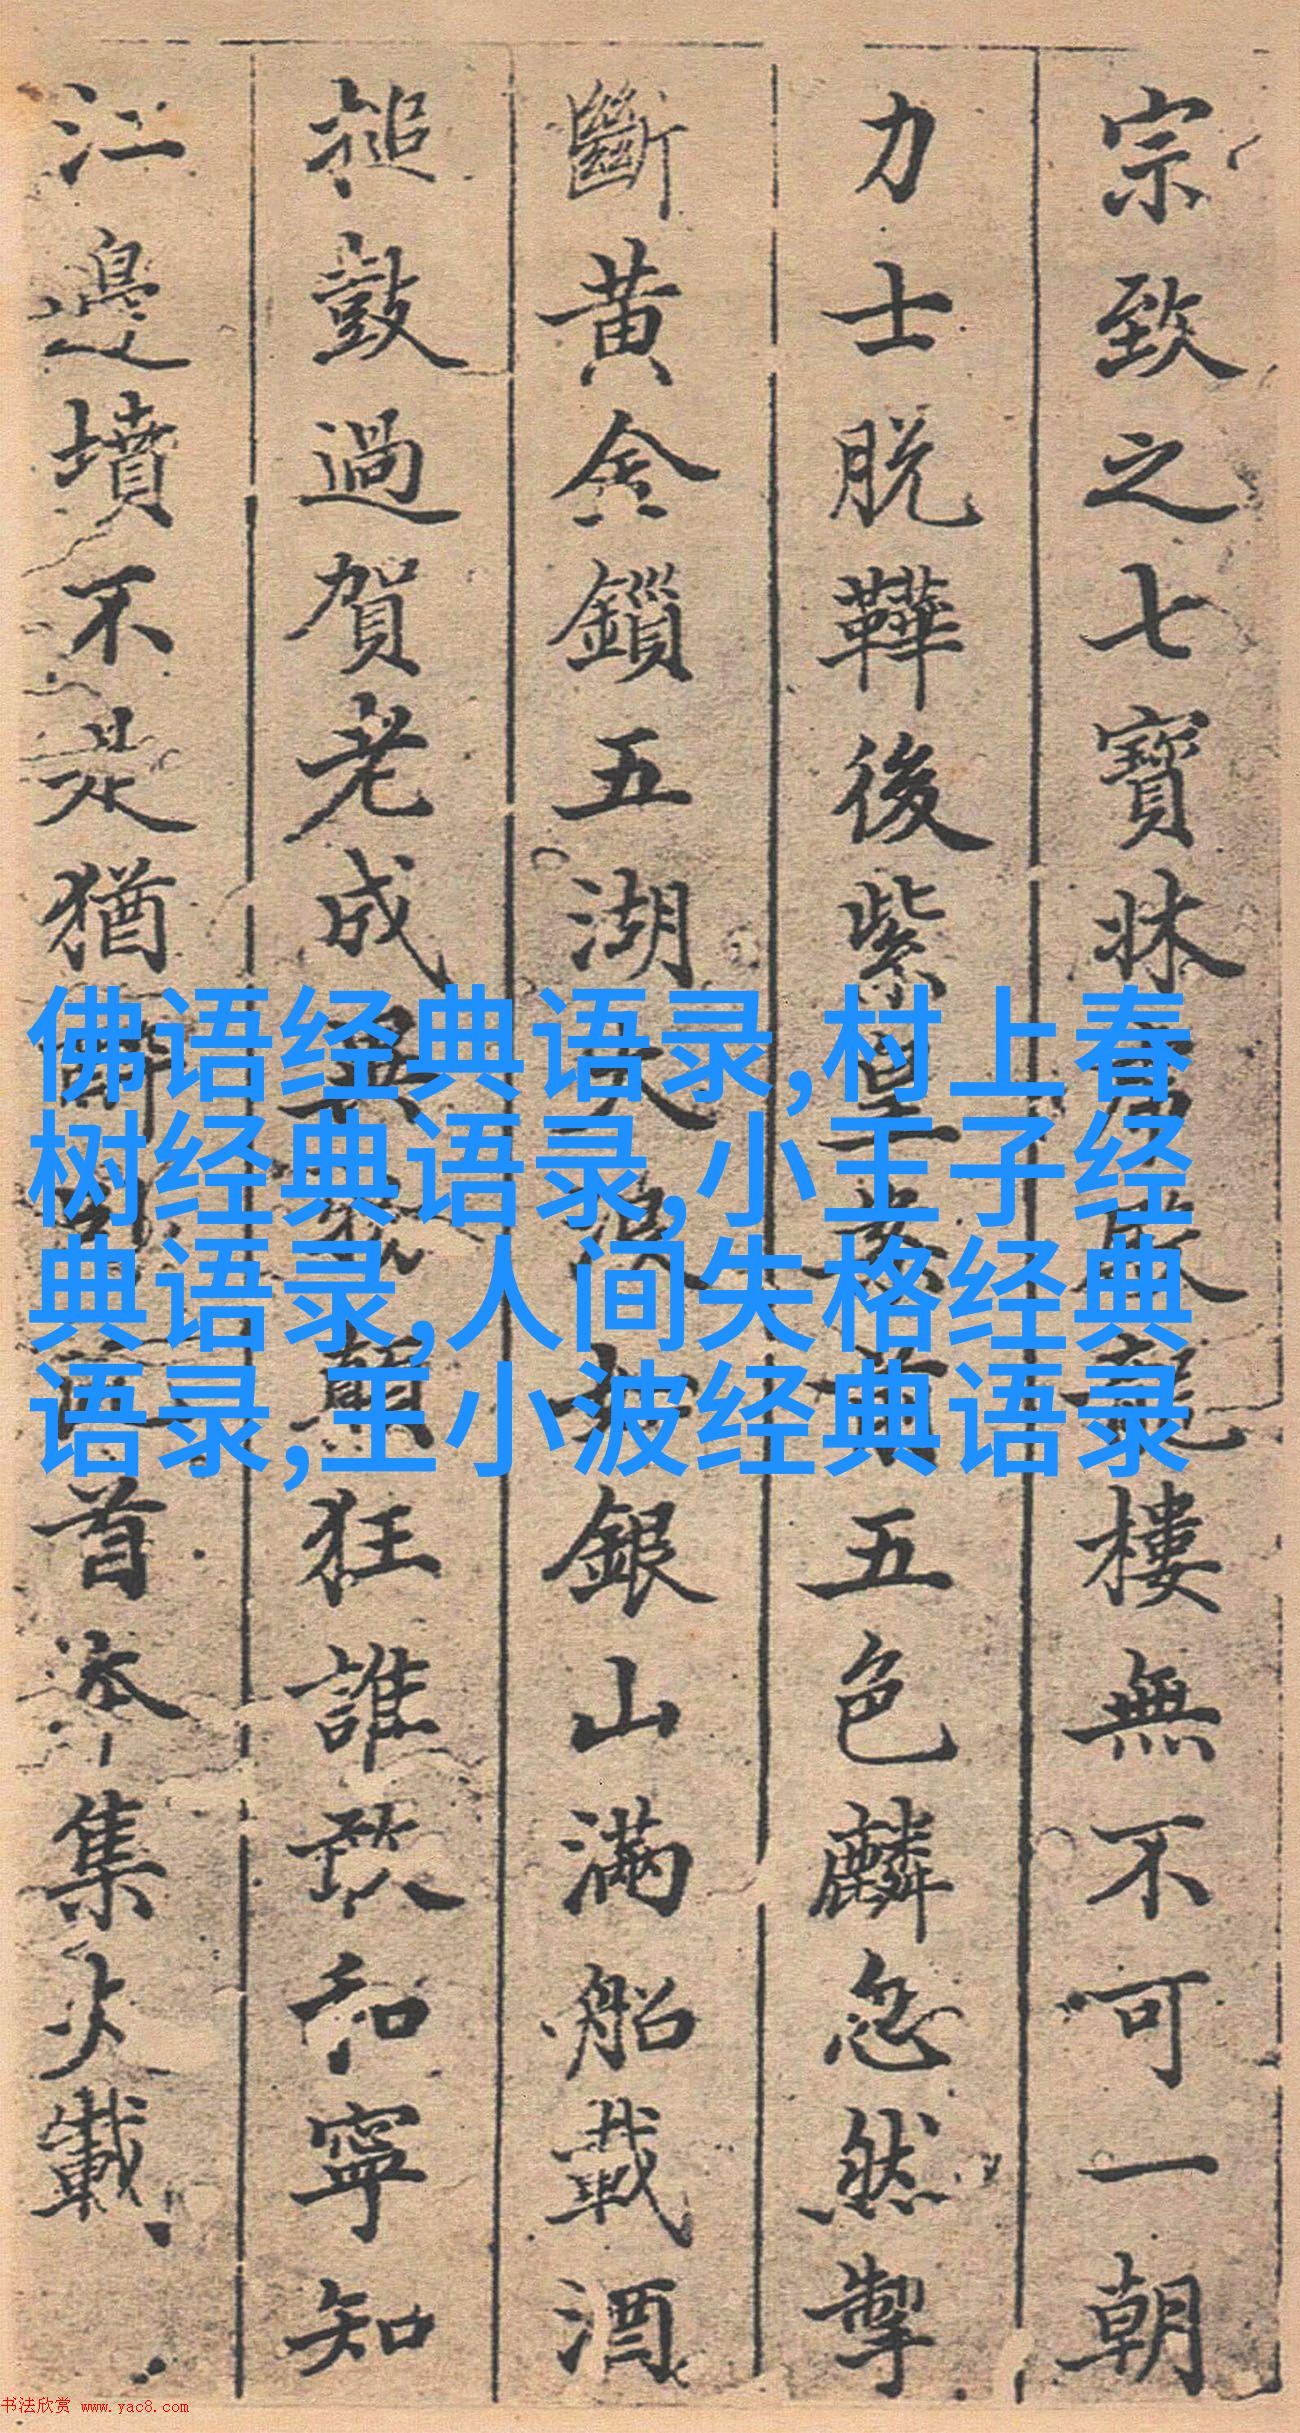 宗致之七寶牀殿龍樓無不可一朝
力士脫鞾後紫皇案前五色麟忽然掣
斷黃金鎖五湖大浪如銀山滿船載酒
搥鼓過賀老成異物顛狂誰敢和寧知
江邊墳不是猶醉首夲集火載
佛语经典语录,村上春
树经典语录,小王子经
典语录,人间失格经典
语录,王小波经典语录
书法欣赏 www.yac8.com